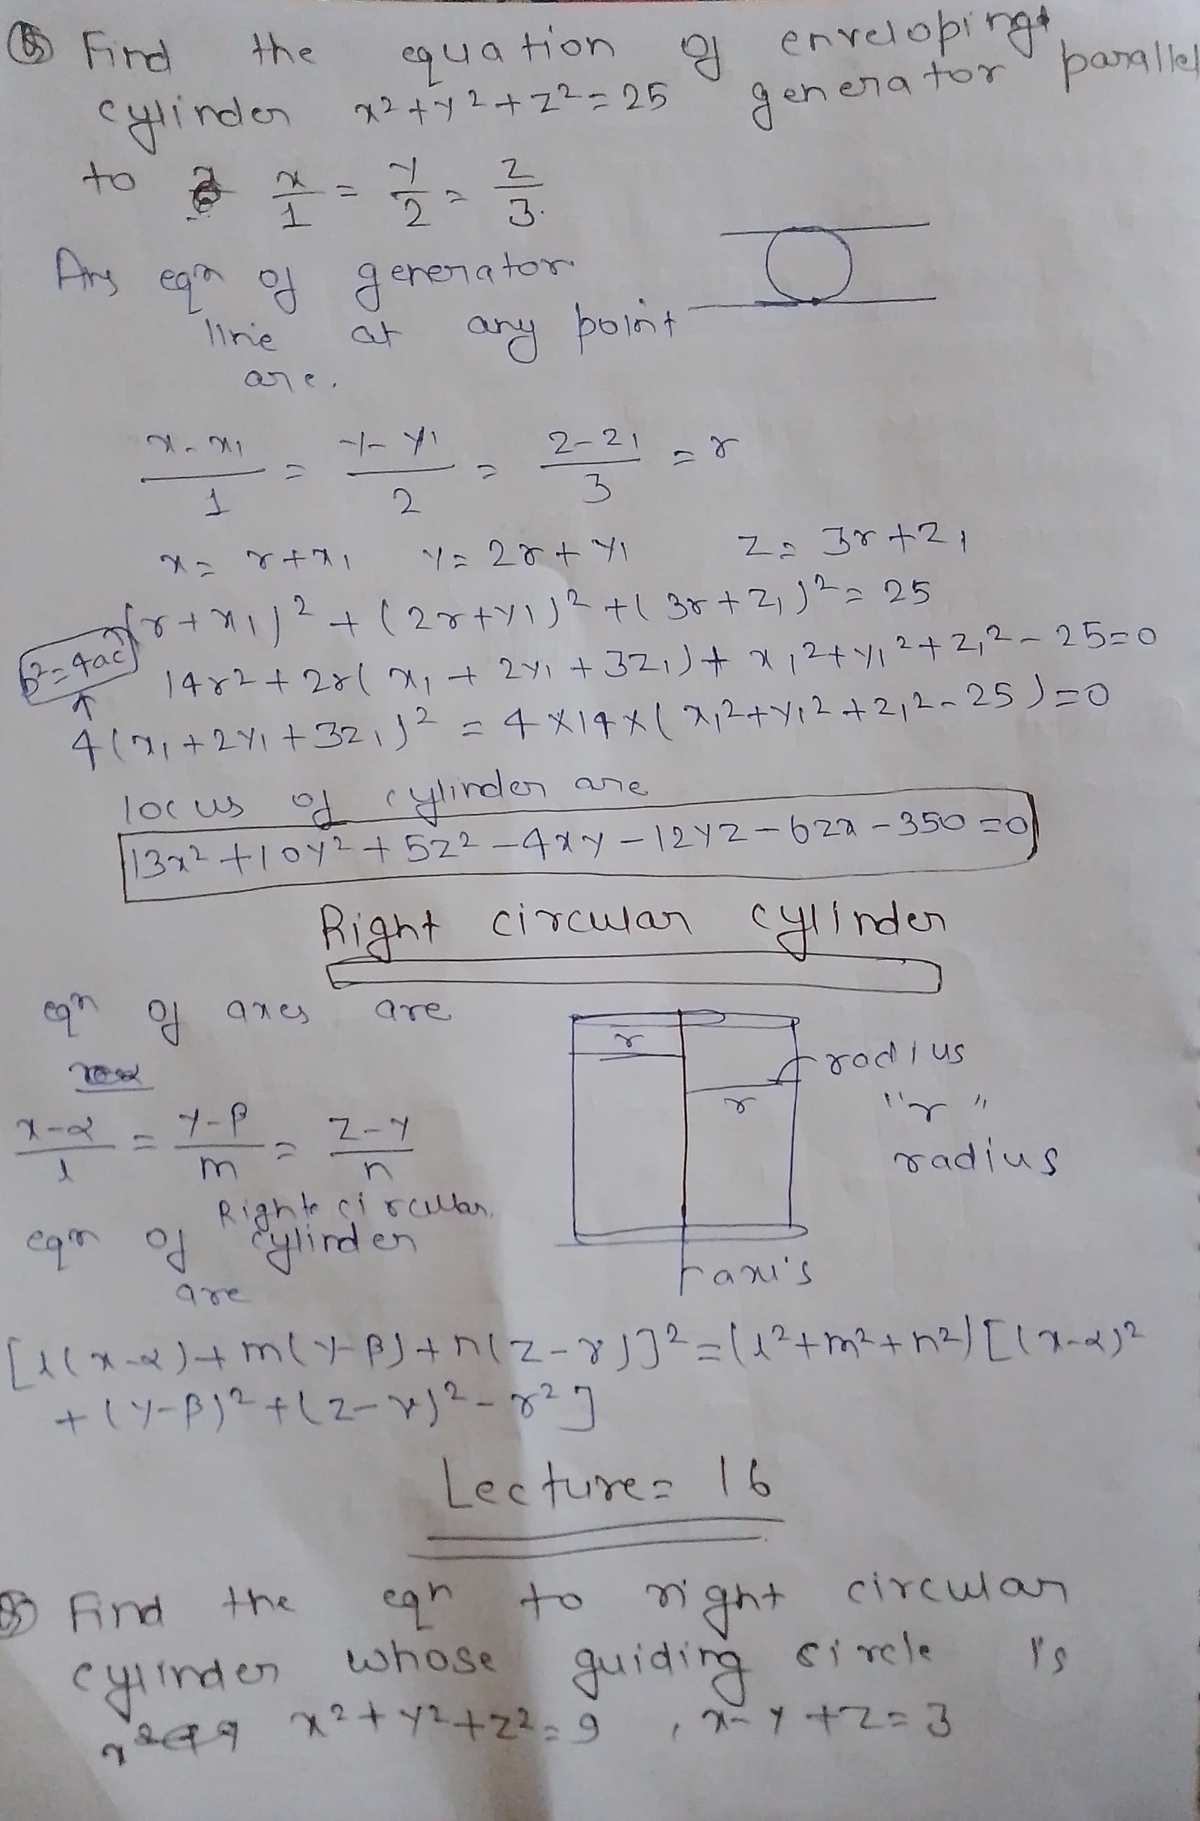 Q Find the equation of enveloping
cylinder x²+y²+z²=25 generator parallel
to x/1 = y/2 = z/3.
Ans eqn of generator
line at any point
are.
x-x₁/1 = y-y₁/2 = z-z₁/3 = r
x = r+x₁ y = 2r+y₁ z = 3r+z₁
(r+x₁)²+(2r+y₁)²+(3r+z₁)²=25
b²=4ac
14r²+2r(x₁+2y₁+3z₁)+x₁²+y₁²+z₁²-25=0
4(x₁+2y₁+3z₁)²=4×14×(x₁²+y₁²+z₁²-25)=0
locus of cylinder are
13x²+10y²+5z²-4xy-12yz-6zx-350=0
Right circular cylinder
eqn of axes are
x-α/l = y-β/m = z-γ/n
r
r
radius
"r"
radius
axis
eqn of Right circular cylinder
are
[l(x-α)+m(y-β)+n(z-γ)]²=(l²+m²+n²)[(x-α)²
+(y-β)²+(z-γ)²-r²]
Lecture= 16
Q Find the eqn to right circular
cylinder whose guiding circle is
x²+y²+z²=9, x-y+z=3